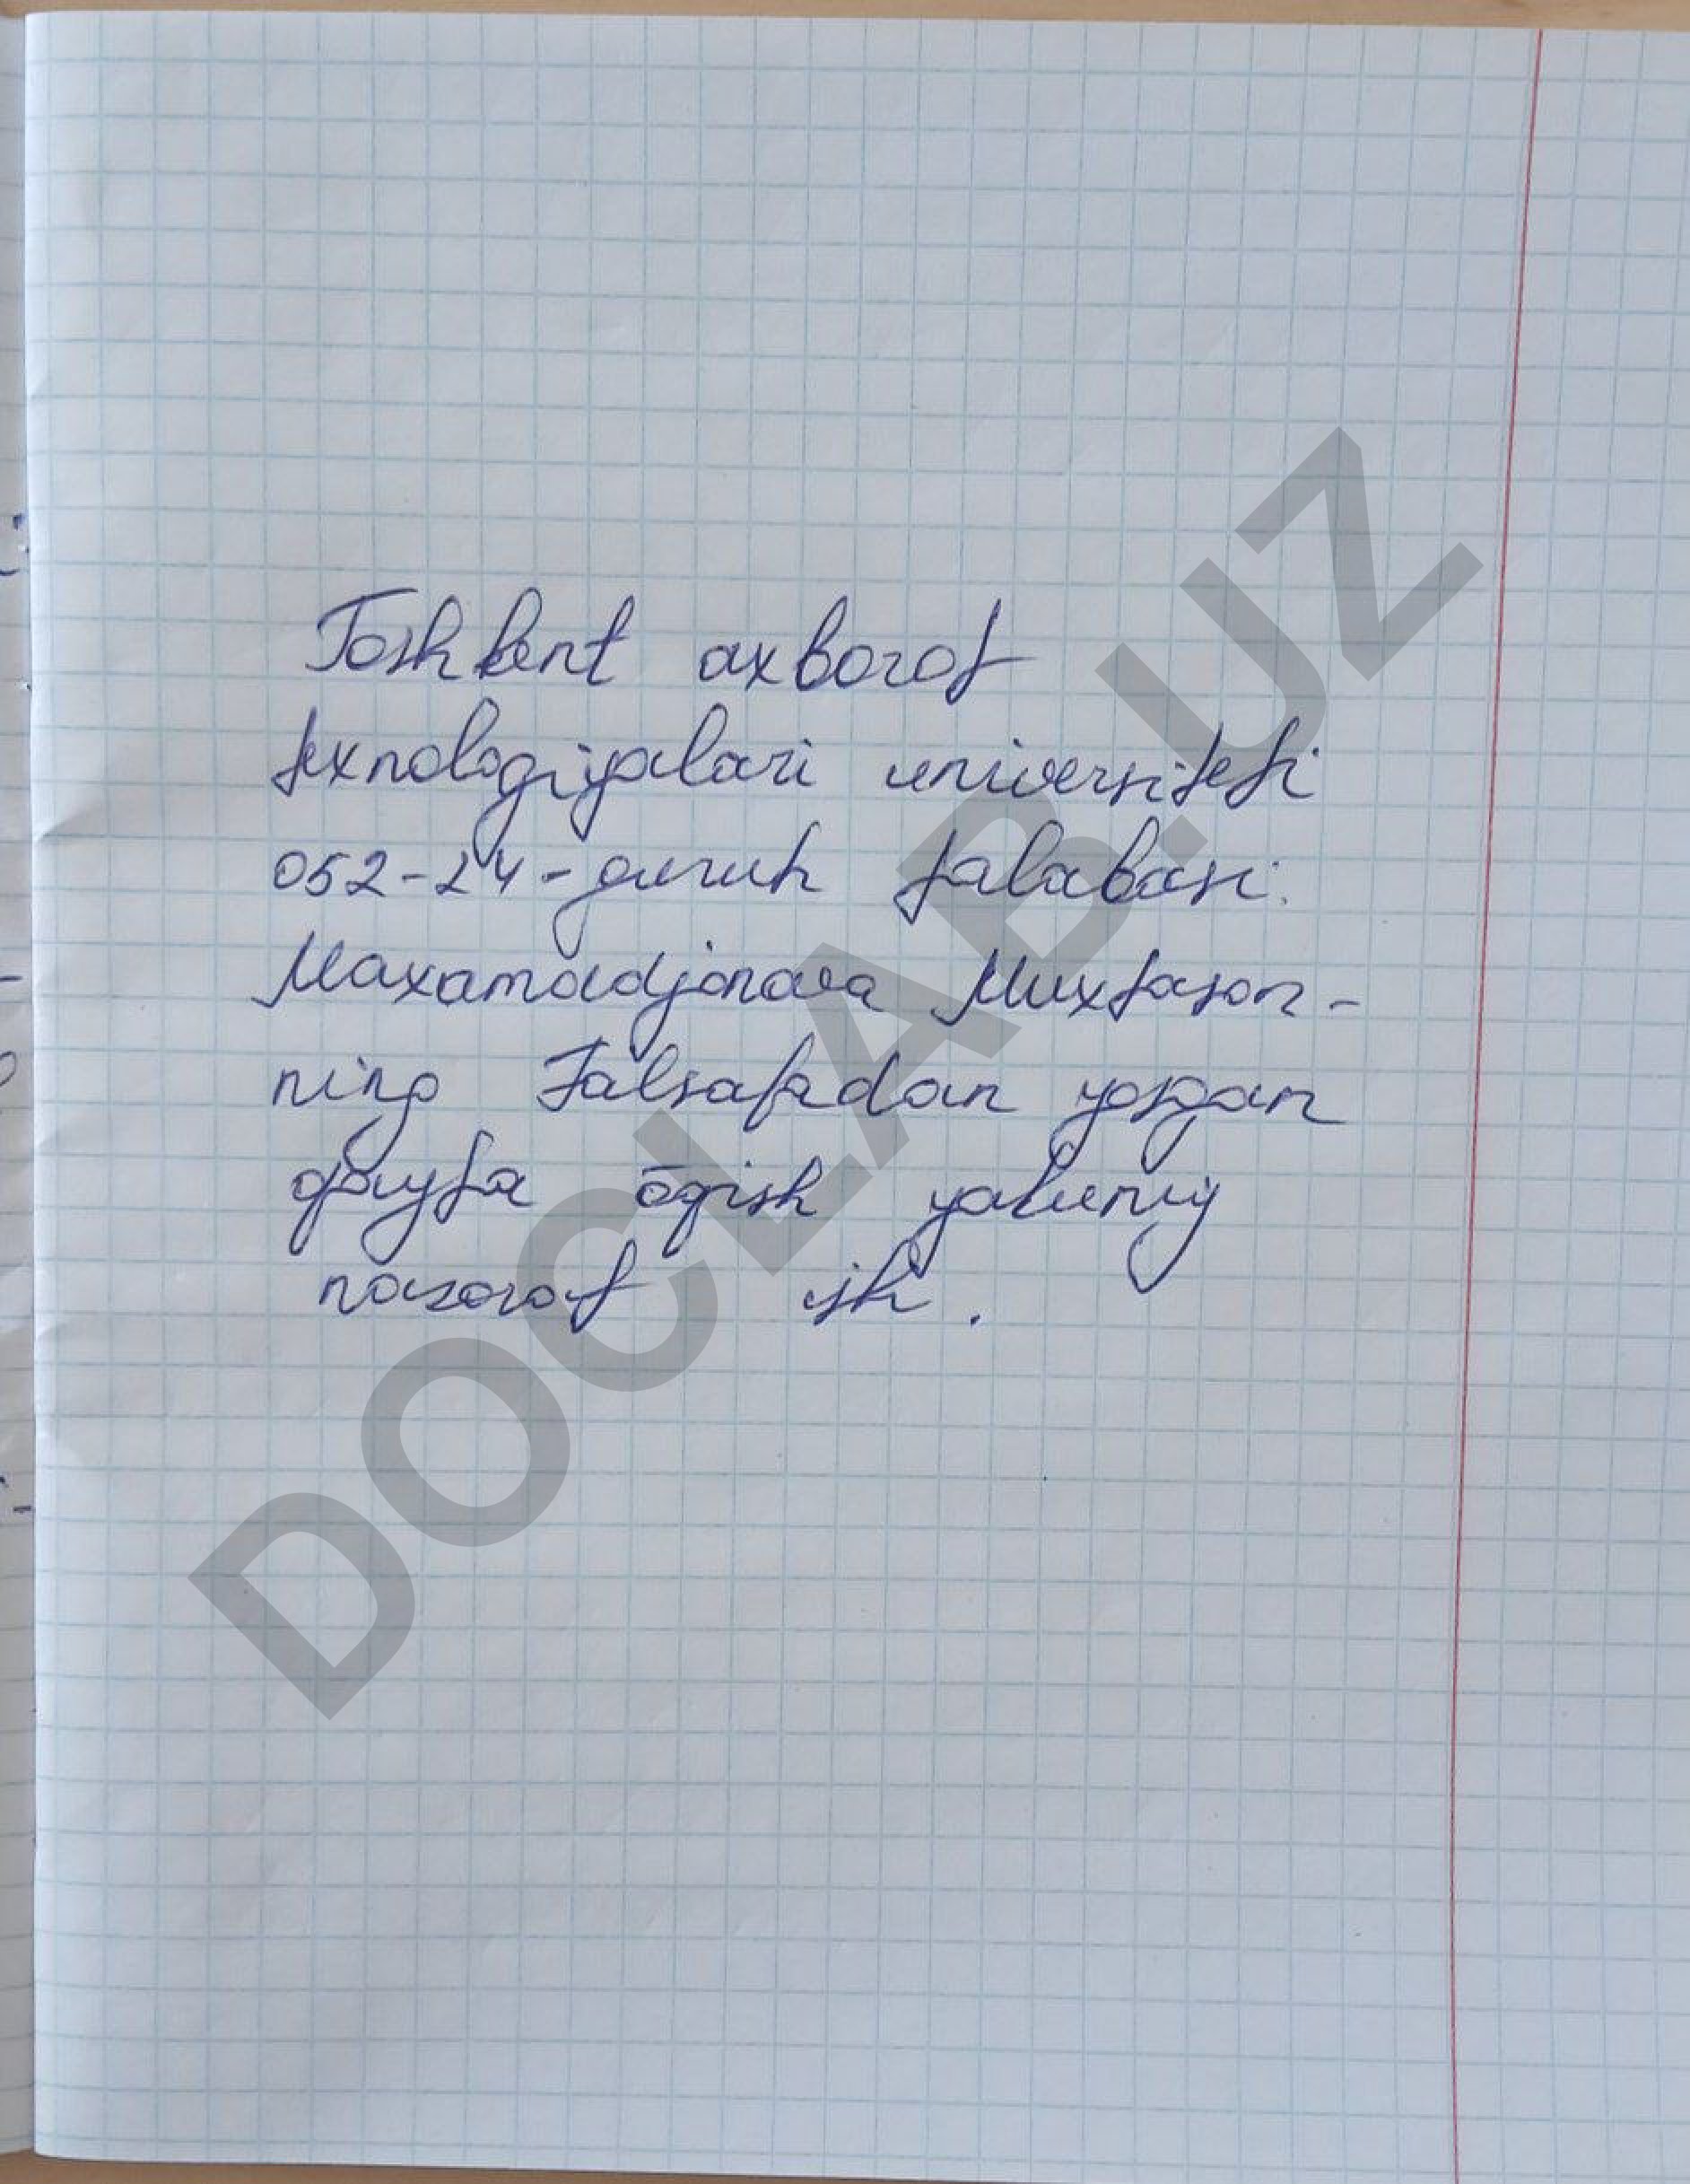 Toshkent axborot
texnologiyalari universiteti
052-24-guruh talabasi:
Maxamadjonova Muxtasar-
ning Falsafadan yozgan
qayta õqish yakuniy
nazorat ish.
DOCLAB.UZ